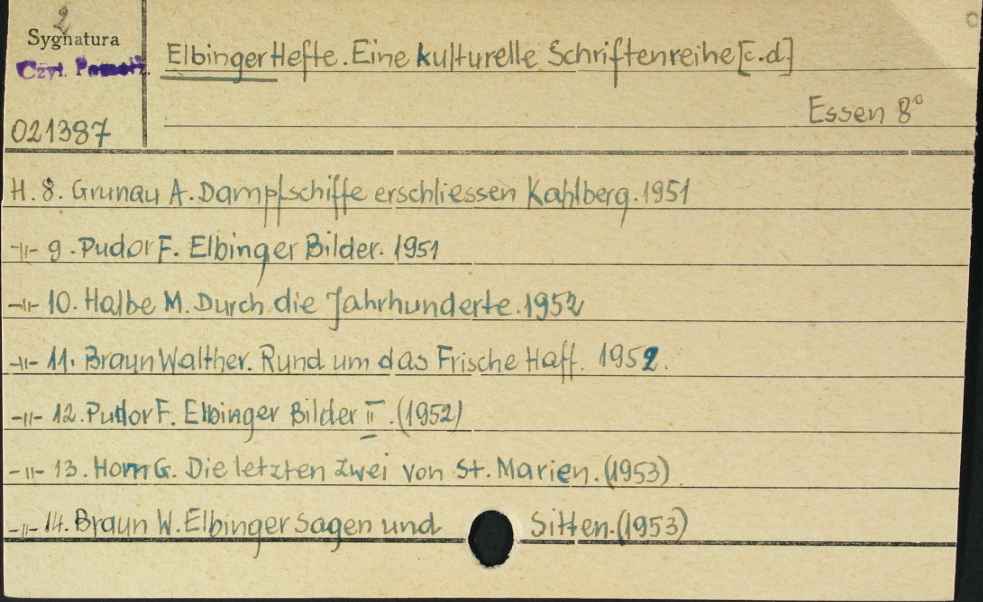 2
Sygnatura
Czyt. Pomorz.
Elbinger Hefte. Eine kulturelle Schriftenreihe [c.d.]
Essen 8°
021387
H. 8. Grunau A. Dampfschiffe erschliessen Kahlberg. 1951
-"- 9. Pudor F. Elbinger Bilder. 1951
-"- 10. Halbe M. Durch die Jahrhunderte. 1952
-"- 11. Braun Walther. Rund um das Frische Haff. 1952.
-"- 12. Pudor F. Elbinger Bilder II. (1952)
-"- 13. Horn G. Die letzten zwei von St. Marien. (1953)
-"- 14. Braun W. Elbinger Sagen und Sitten. (1953)